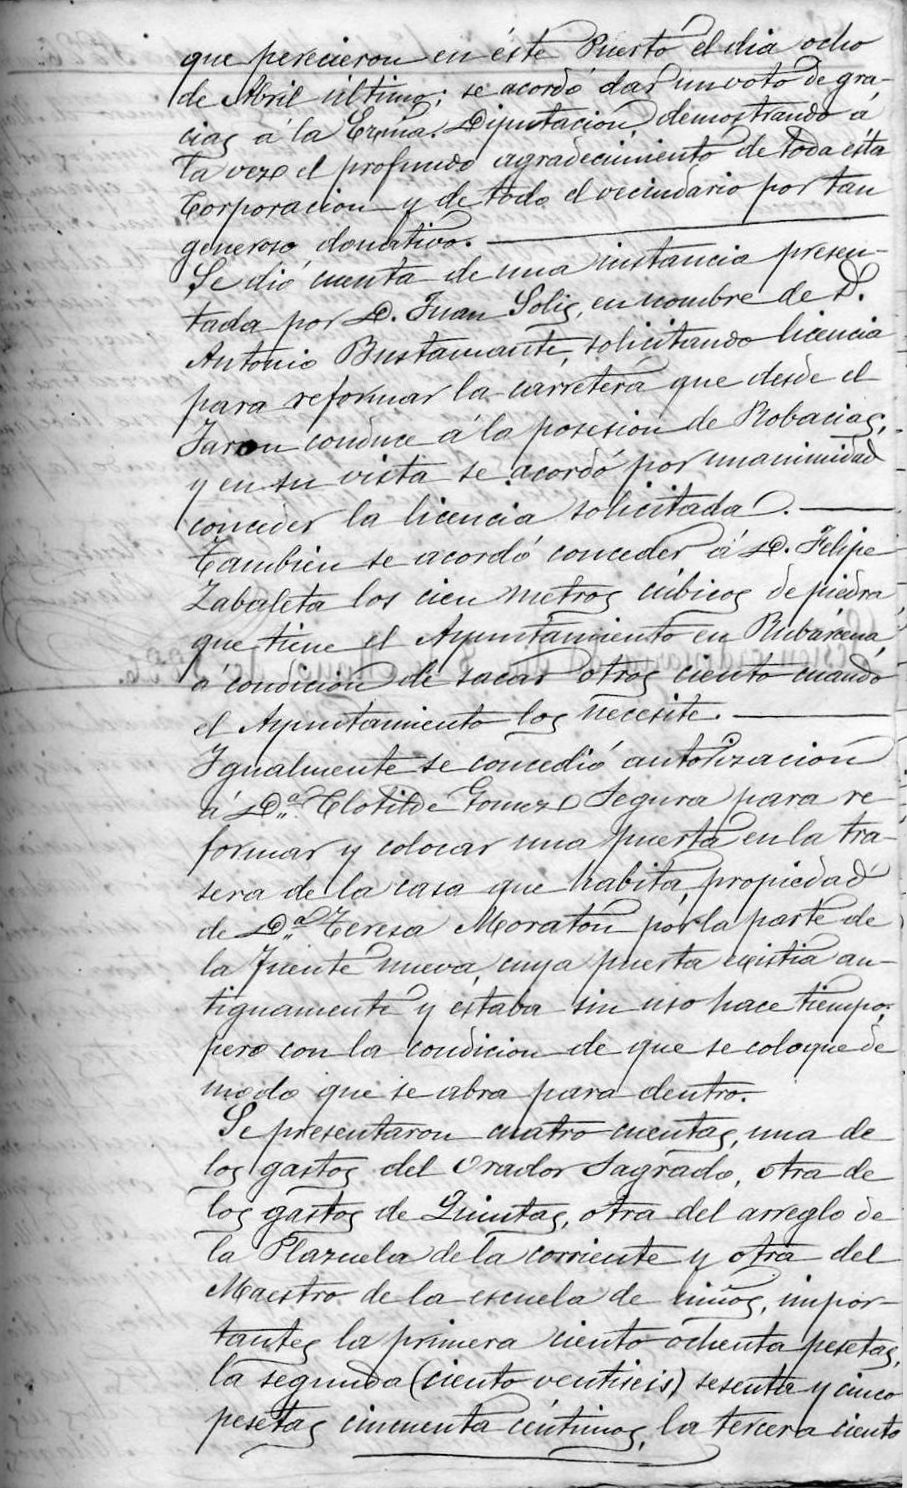 que perecieron en éste Puerto el dia ocho
de Abril último; se acordó dar un voto de gra-
cias á la Exma. Diputacion, demostrando á
la vez el profundo agradecimiento de toda ésta
Corporacion y de todo el vecindario por tan
generoso donativo.
Se dió cuenta de una instancia presen-
tada por D. Juan Solis, en nombre de D.
Antonio Bustamante, solicitando licencia
para reformar la carretera que desde el
Jaron conduce á la posesion de Robacias,
y en su vista se acordó por unanimidad
conceder la licencia solicitada.
Tambien se acordó conceder á D. Felipe
Zabaleta los cien metros cúbicos de piedra
que tiene el Ayuntamiento en Rubárcena
á condición de sacar otros ciento cuando
el Ayuntamiento los necesite.
Igualmente se concedió autorizacion
á D.ª Clotilde Gomez Segura para re-
formar y colocar una puerta en la tra-
sera de la casa que habita, propiedad
de D.ª Teresa Moraton por la parte de
la Fuente nueva, cuya puerta existia an-
tiguamente y éstaba sin uso hace tiempo;
pero con la condicion de que se coloque de
modo que se abra para dentro.
Se presentaron cuatro cuentas, una de
los gastos del Orador Sagrado, otra de
los gastos de Quintas, otra del arreglo de
la Plazuela de la corriente y otra del
Maestro de la escuela de niños, impor-
tantes la primera ciento ochenta pesetas,
la segunda (ciento ventiseis) sesenta y cinco
pesetas cincuenta céntimos, la tercera ciento